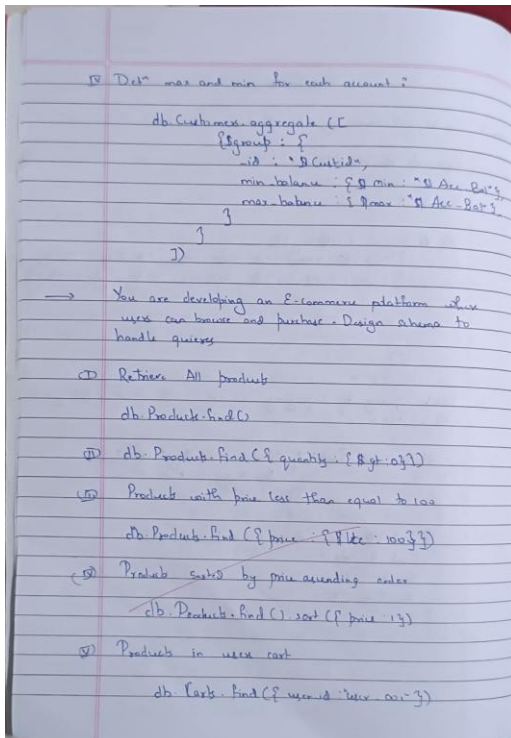 IV Detn max and min for each account :
db.Customers.aggregate ([
{$group : {
_id : "$Custid",
min_balance : { $ min : "$ Acc_Bal" },
max_balance : { $ max : "$ Acc_Bal" }
}
}
])
→ You are developing an E-commerce platform where
users can browse and purchase. Design schema to
handle quieres
I Retrieve All products
db.Products.find()
II db.Products.find({ quantity : { $ gt : 0}})
III Products with price less than equal to 100
db.Products.find ({ price : { $ lte : 100}})
IV Products sorted by price ascending order
db.Products.find().sort ({ price : 1})
V Products in user cart
db.Carts.find({ user id :